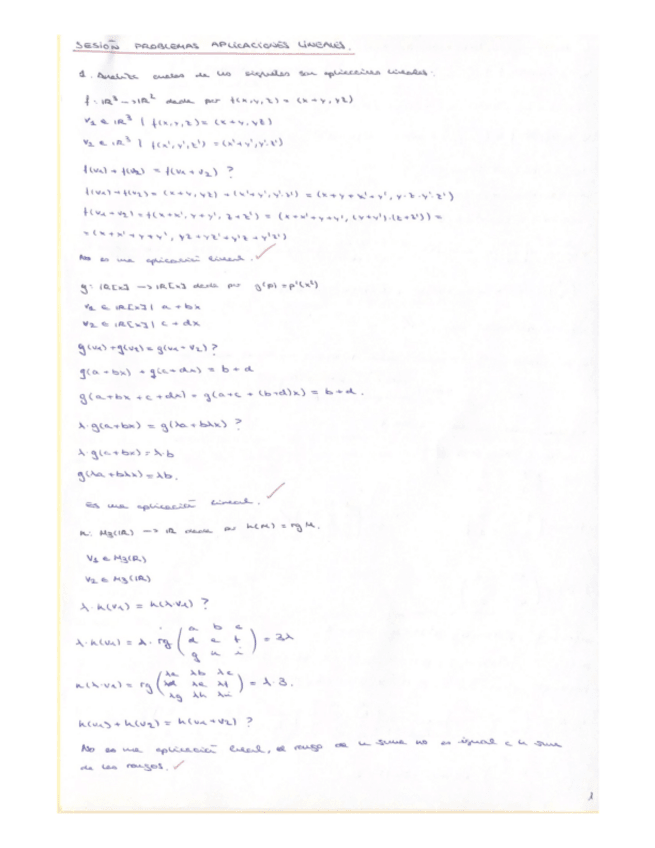 SESIÓN PROBLEMAS APLICACIONES LINEALES.
1. Analiza cuales de las siguientes son aplicaciones lineales.
f: IR³ → IR² dada por f(x,y,z) = (x+y, yz)
v₁ ∈ IR³ | f(x,y,z) = (x+y, yz)
v₂ ∈ IR³ | f(x',y',z') = (x'+y', y'·z')
f(v₁) + f(v₂) = f(v₁+v₂) ?
f(v₁) + f(v₂) = (x+y, yz) + (x'+y', y'·z') = (x+y+x'+y', y·z·y'·z')
f(v₁+v₂) = f(x+x', y+y', z+z') = (x+x'+y+y', (y+y')·(z+z')) =
= (x+x'+y+y', yz+yz'+y'z+y'z')
No es una aplicación lineal. ✓
g: IR[x] → IR[x] dada por g(p) = p'(x)
v₁ ∈ IR[x] | a+bx
v₂ ∈ IR[x] | c+dx
g(v₁) + g(v₂) = g(v₁+v₂) ?
g(a+bx) + g(c+dx) = b+d
g(a+bx+c+dx) = g(a+c + (b+d)x) = b+d.
λ·g(a+bx) = g(λa+bλx) ?
λ·g(a+bx) = λ·b
g(λa+bλx) = λb.
Es una aplicación lineal. ✓
h: M₃(IR) → IR dada por h(M) = rg M.
v₁ ∈ M₃(IR)
v₂ ∈ M₃(IR)
λ·h(v₁) = h(λ·v₁) ?
λ·h(v₁) = λ·rg (a b c / d e f / g h i) = 3λ
h(λ·v₁) = rg (λa λb λc / λd λe λf / λg λh λi) = λ·3.
h(v₁) + h(v₂) = h(v₁+v₂) ?
No es una aplicación lineal, el rango de la suma no es igual a la suma
de los rangos. ✓
1